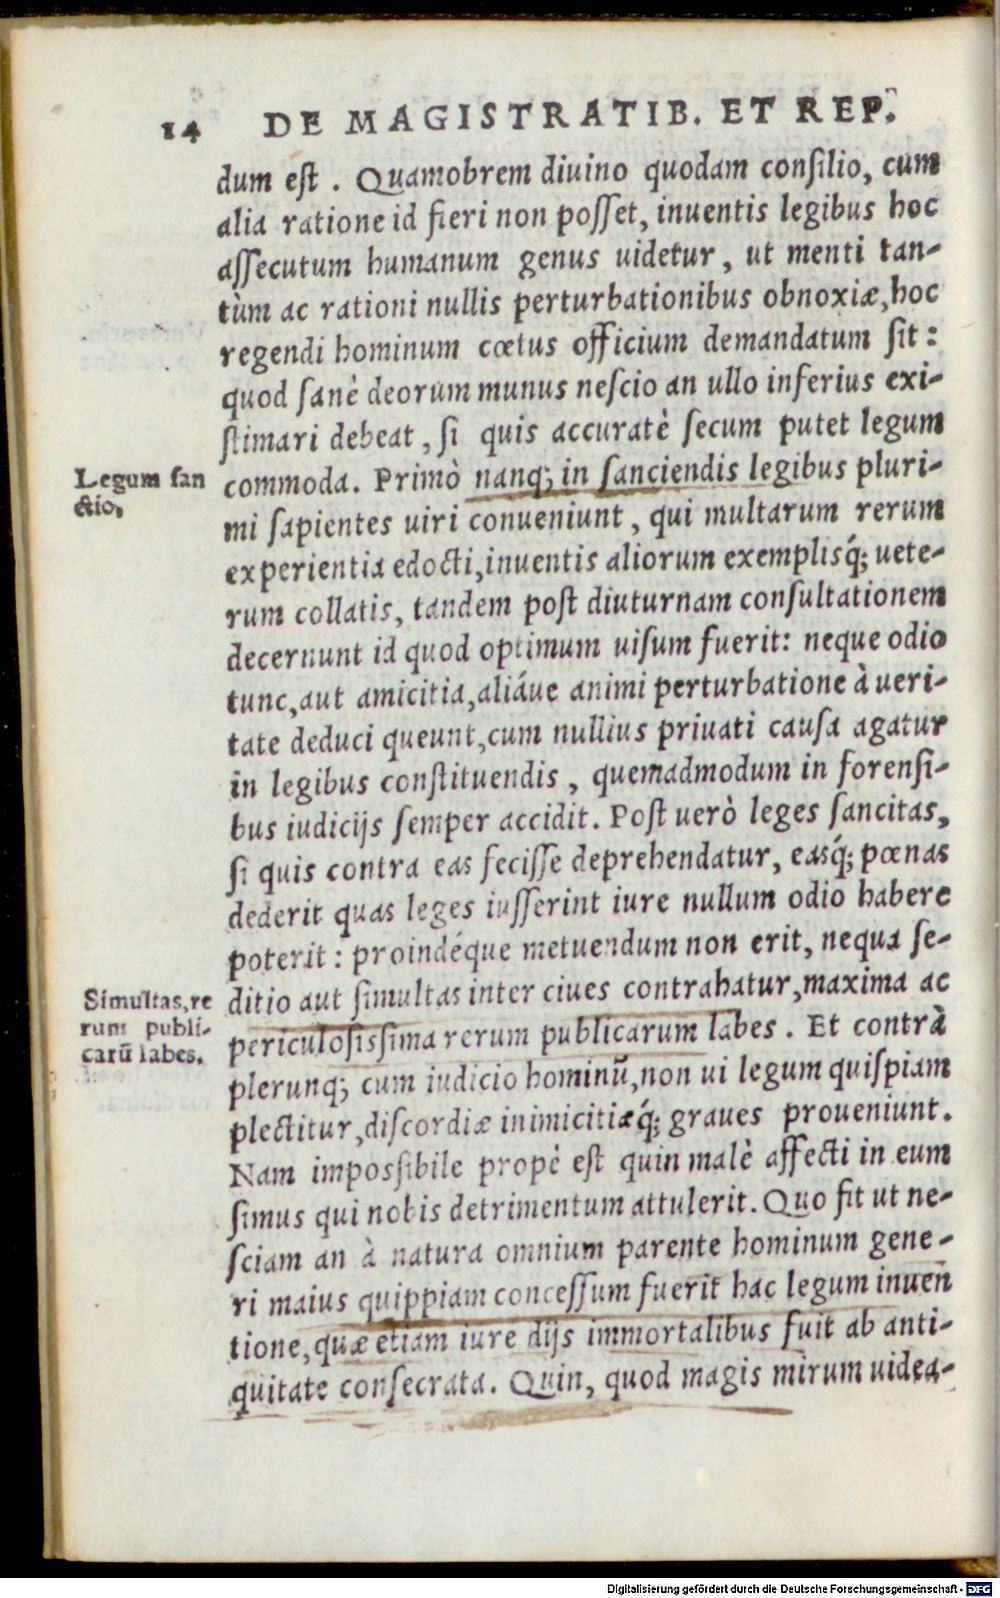 14 DE MAGISTRATIB. ET REP.
dum eſt . Quamobrem diuino quodam conſilio, cum
alia ratione id fieri non poſſet, inuentis legibus hoc
aſſecutum humanum genus uidetur, ut menti tan-
tùm ac rationi nullis perturbationibus obnoxiæ, hoc
regendi hominum cœtus officium demandatum ſit:
quod ſanè deorum munus neſcio an ullo inferius exi-
ſtimari debeat, ſi quis accuratè ſecum putet legum
Legum ſan
ctio.
commoda. Primò nanq; in ſanciendis legibus pluri-
mi ſapientes uiri conueniunt, qui multarum rerum
experientia edocti, inuentis aliorum exemplisq́; uete-
rum collatis, tandem poſt diuturnam conſultationem
decernunt id quod optimum uiſum fuerit: neque odio
tunc, aut amicitia, aliáue animi perturbatione à ueri-
tate deduci queunt, cum nullius priuati cauſa agatur
in legibus conſtituendis, quemadmodum in forenſi-
bus iudicijs ſemper accidit. Poſt uerò leges ſancitas,
ſi quis contra eas feciſſe deprehendatur, easq́; pœnas
dederit quas leges iuſſerint iure nullum odio habere
poterit: proindéque metuendum non erit, nequa ſe-
Simultas, re
rum publi-
carũ labes.
ditio aut ſimultas inter ciues contrahatur, maxima ac
periculoſisſima rerum publicarum labes. Et contrà
plerunq; cum iudicio hominũ, non ui legum quiſpiam
plectitur, diſcordiæ inimicitiæq́; graues proueniunt.
Nam imposſibile propè eſt quin malè affecti in eum
ſimus qui nobis detrimentum attulerit. Quo fit ut ne-
ſciam an à natura omnium parente hominum gene-
ri maius quippiam conceſſum fuerit hac legum inuen
tione, quæ etiam iure dijs immortalibus fuit ab anti-
quitate conſecrata. Quin, quod magis mirum uidea-
Digitalisierung gefördert durch die Deutsche Forschungsgemeinschaft - DFG